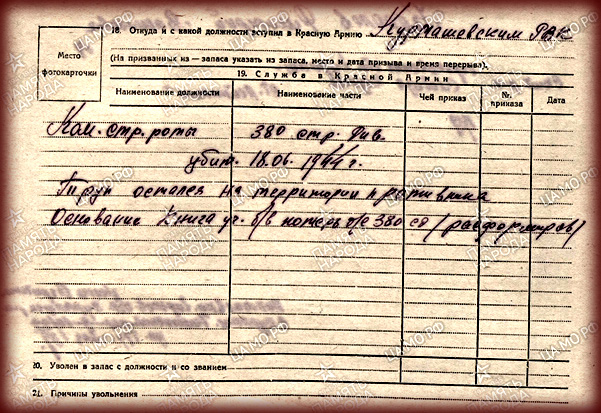 Место
фотокарточки
18. Откуда и с какой должности вступил в Красную Армию Курмашевским РВК
(На призванных из — запаса указать из запаса, место и дата призыва и время перерыва).
19. Служба в Красной Армии
Наименование должности Наименование части Чей приказ №. приказа Дата
Ком. стр. роты 380 стр. див.
убит. 18.06.1944 г.
Труп остался на территории противника
Основание книга уч. б/в потерь о/с 380 сд (расформиров)
20. Уволен в запас с должности и со званием
21. Причины увольнения
ЦАМО.РФ
ПАМЯТЬ НАРОДА